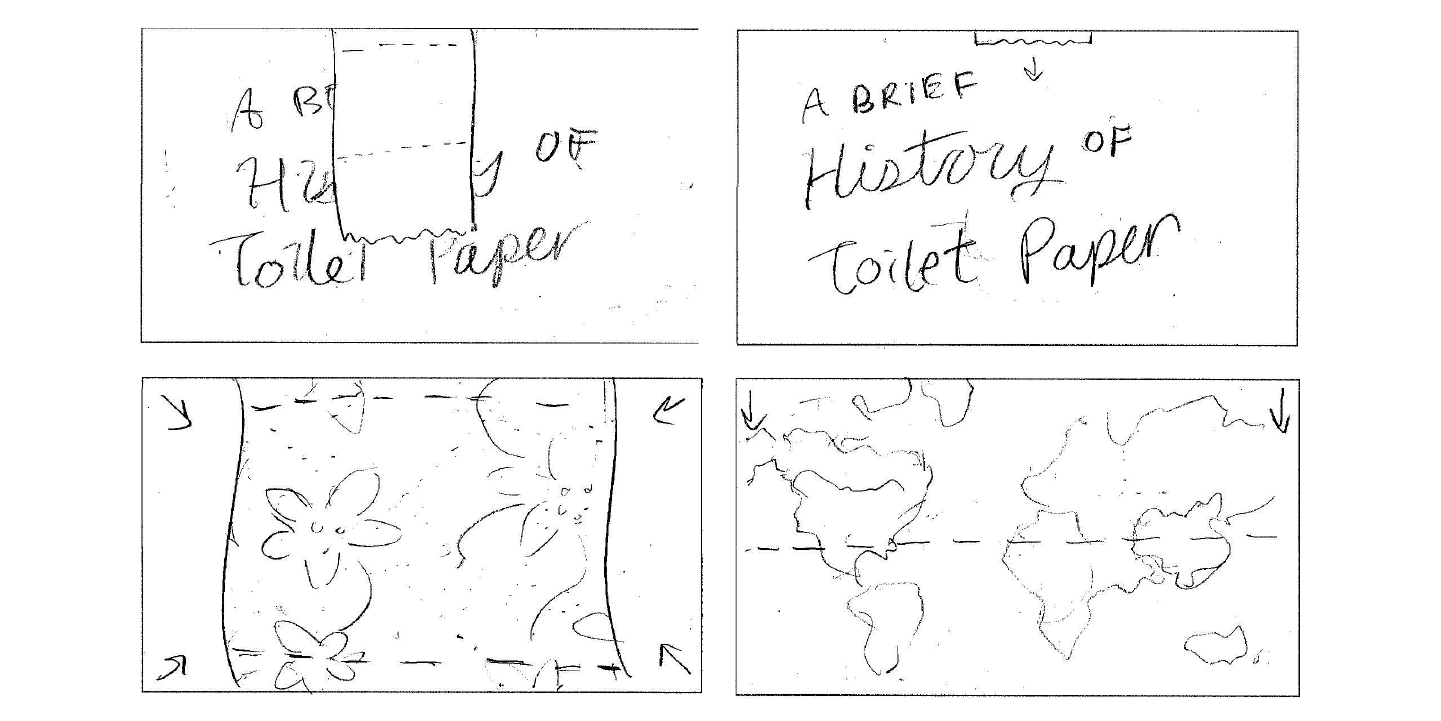 A BR
His y OF
Toilet Paper
A BRIEF
History OF
Toilet Paper